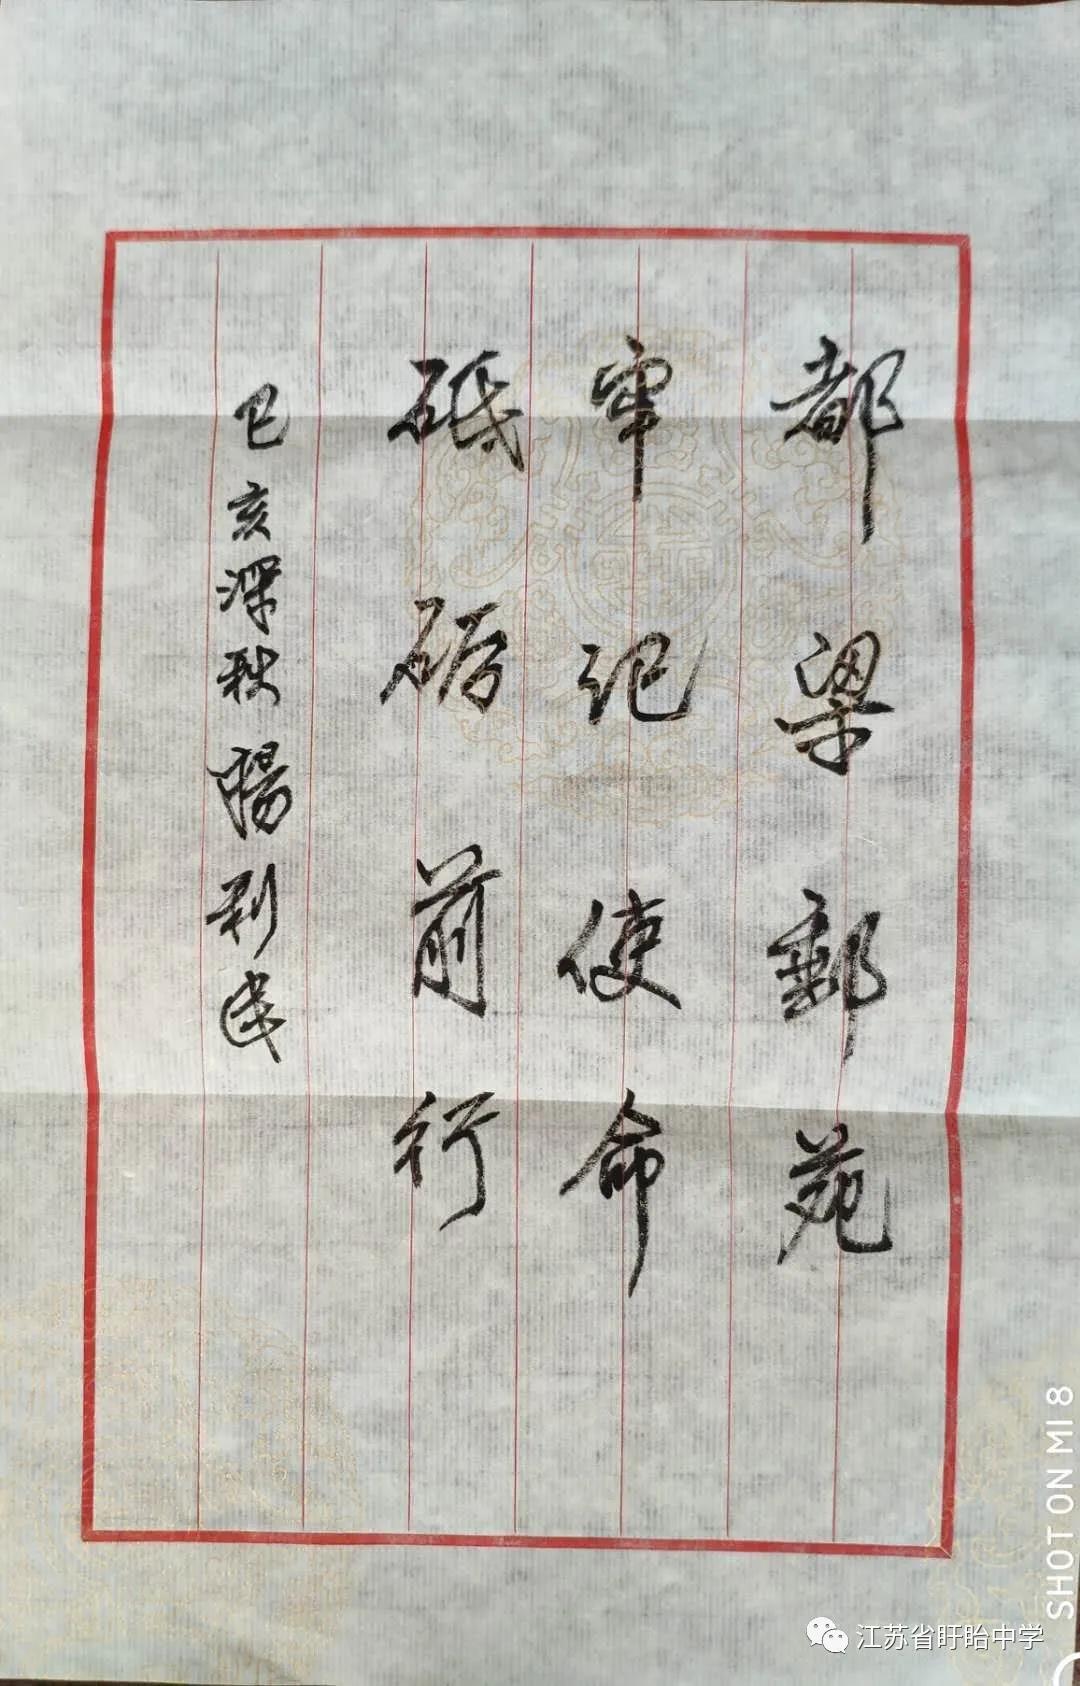 都梁郵苑
牢记使命
砥砺前行
己亥深秋楊利建
SHOT ON MI 8
江苏省盱眙中学